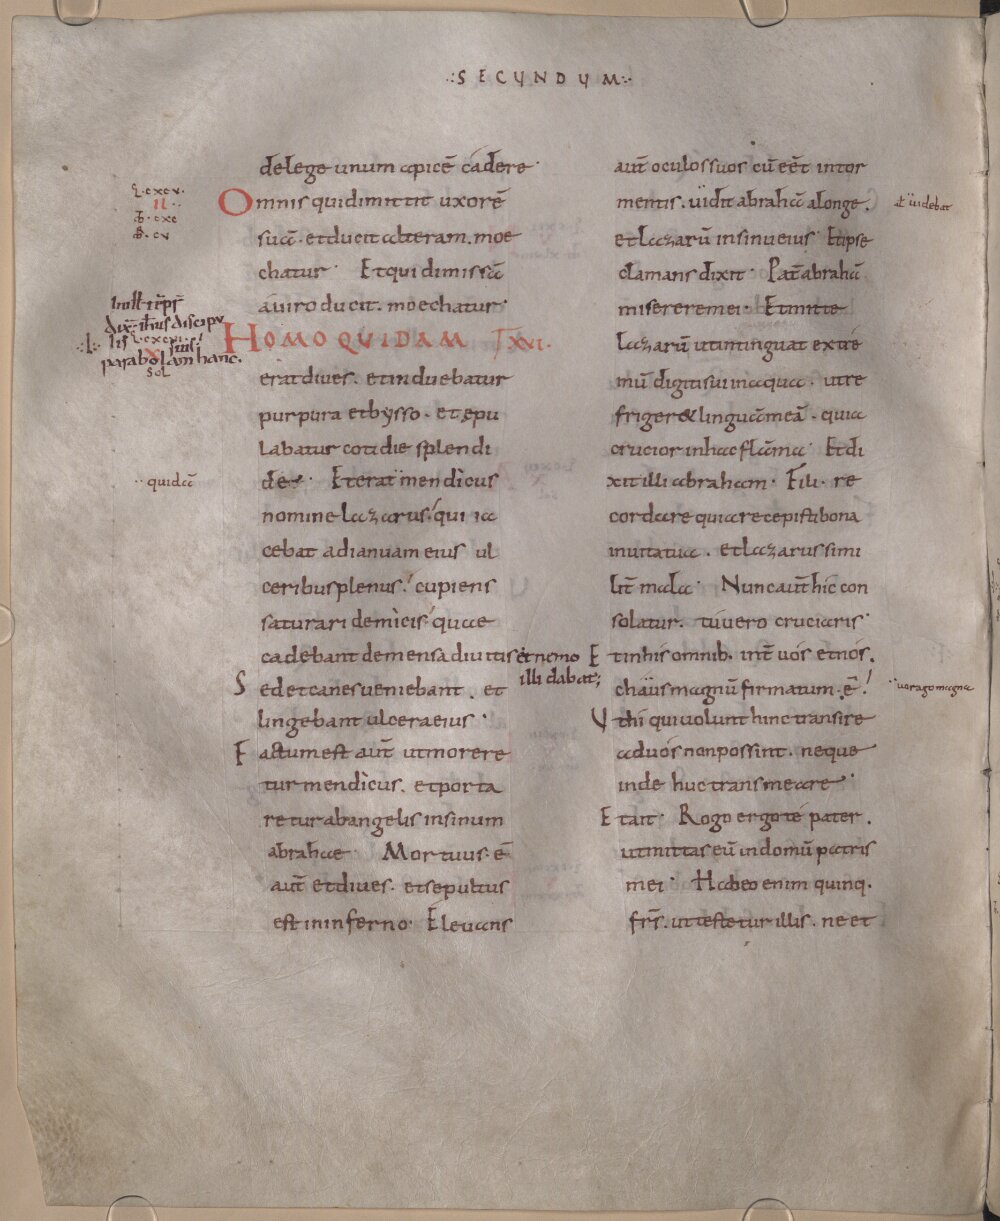 :SECUNDUM:
de lege unum apicē cadere·
Omnis qui dimittit uxorē
suā· et ducit alteram. moe
chatur· Et qui dimissā
a viro ducit. moechatur·
HOMO QUIDAM XVI.
erat dives. et induebatur
purpura et bysso· et epu
labatur cotidie splendi
de· Et erat mendicus
nomine lazarus! qui ia
cebat ad ianuam eius ul
ceribus plenus! cupiens
saturari de micis quae
cadebant de mensa divitis et nemo
illi dabat;
Sed et canes veniebant. et
lingebant ulcera eius·
Factum est aut̄ ut morere
tur mendicus. et porta
retur ab angelis in sinum
abrahae· Mortuus· ē
aut̄ et dives. et sepultus
est in inferno· Elevans
L·cxcv·
II··
quidā
In ill tēpr̄
dix̄ ih̄us discipu
lis suis!
parabolam hanc.
X
SOL
aut̄ oculos suos cū eēt in tor
mentis. vidit abrahā a longe.
et lazarū in sinu eius· Et ipse
clamans dixit· Pat̄ abrahā
miserere mei· Et mitte
lazarū ut intinguat extre
mū digiti sui in aqua. ut re
friger& linguā meā· quia
crucior in hac flāma· Et di
xit illi abraham· Fili· re
cordare quia recepisti bona
in vita tua. et lazarus simi
lit̄ mala· Nunc aut̄ hic con
solatur. tu vero cruciaris·
Et in his omnib. int̄ vos et nos.
chaüs magnū firmatum· ē!
Ut hi qui volunt hinc transire
ad vos non possint. neque
inde huc transmeare·
Et ait· Rogo ergo te pater.
ut mittas eū in domū patris
mei· Habeo enim quinq.
fr̄s. ut testetur illis. ne et
al videbat
vorago magna